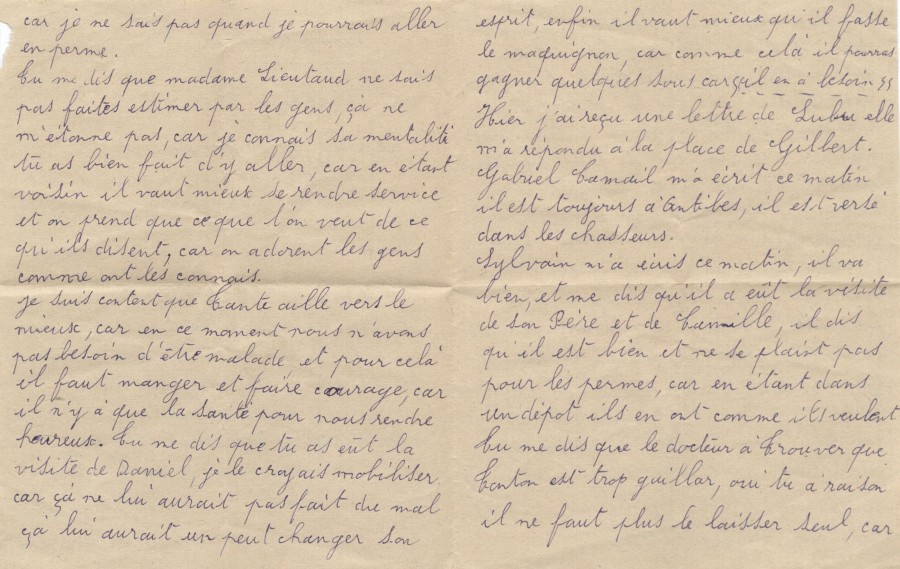 car je ne sais pas quand je pourrais aller
en perme.
Tu me dis que madame Lieutaud ne sais
pas faites estimer par les gens, çà ne
m'étonne pas, car je connais sa mentalité
tu as bien fait d'y aller, car en étant
voisin il vaut mieux se rendre service
et on prend que ce que l'on veut de ce
qu'ils disent, car on adorent les gens
comme ont les connais.
Je suis content que Tante aille vers le
mieux, car en ce moment nous n'avons
pas besoin d'être malade, et pour celà
il faut manger et faire courage, car
il n'y à que la santé pour nous rendre
heureux. Tu me dis que tu as eût la
visite de Daniel, je le croyais mobiliser
car çà ne lui aurait pas fait du mal
çà lui aurait un peut changer son
esprit, enfin il vaut mieux qu'il fasse
le maquignon, car comme celà il pourras
gagner quelques sous car il en à besoin
Hier j'ai reçu une lettre de Lulu elle
m'a répondu à la place de Gilbert.
Gabriel Camail m'a écrit ce matin
il est toujours à Antibes, il est versé
dans les chasseurs.
Sylvain m'a écris ce matin, il va
bien, et me dis qu'il a eût la visite
de son Père et de Camille, il dis
qu'il est bien et ne se plaint pas
pour les permes, car en étant dans
un dépot ils en ont comme ils veulent
Tu me dis que le docteur à trouver que
Tonton est trop guillar, oui tu a raison
il ne faut plus le laisser seul, car